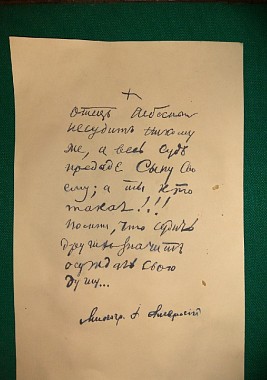 +
Отецъ Небесный
несудитъ никому
же, а весь судъ
предаде Сыну Сво
ему; а ты кто
такая!!!
Помни, что судить
другихъ значитъ
осуждать свою
душу...